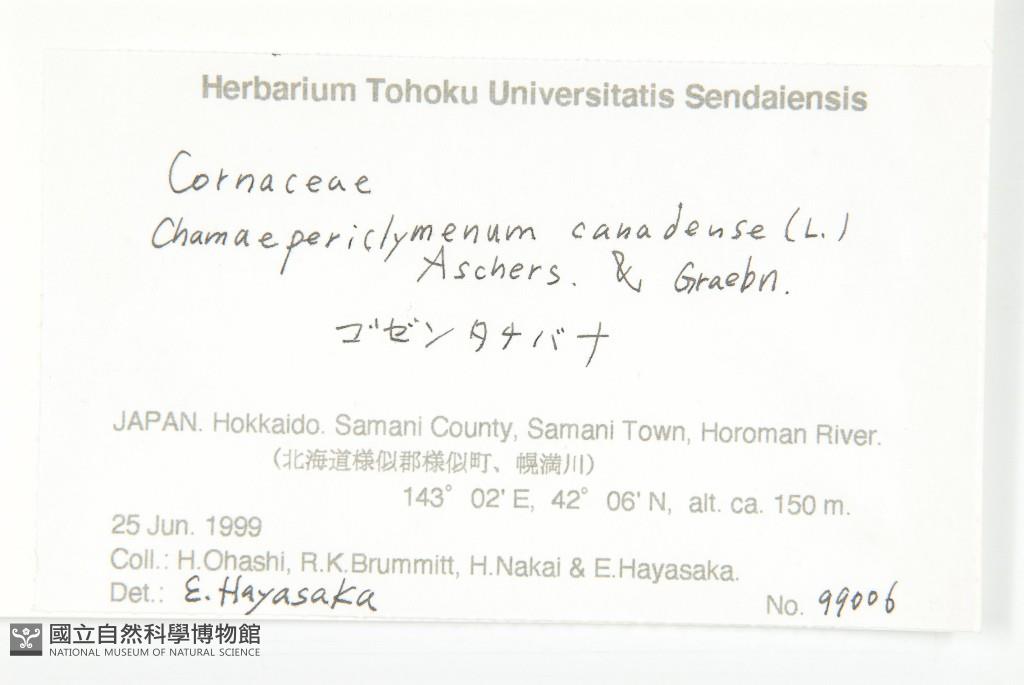 Herbarium Tohoku Universitatis Sendaiensis
Cornaceae
Chamaepericlymenum canadense (L.)
Aschers. & Graebn.
ゴゼンタチバナ
JAPAN. Hokkaido. Samani County, Samani Town, Horoman River.
(北海道様似郡様似町、幌満川)
143° 02' E, 42° 06' N, alt. ca. 150 m.
25 Jun. 1999
Coll.: H.Ohashi, R.K.Brummitt, H.Nakai & E.Hayasaka.
Det.: E.Hayasaka
No. 99006
國立自然科學博物館
NATIONAL MUSEUM OF NATURAL SCIENCE